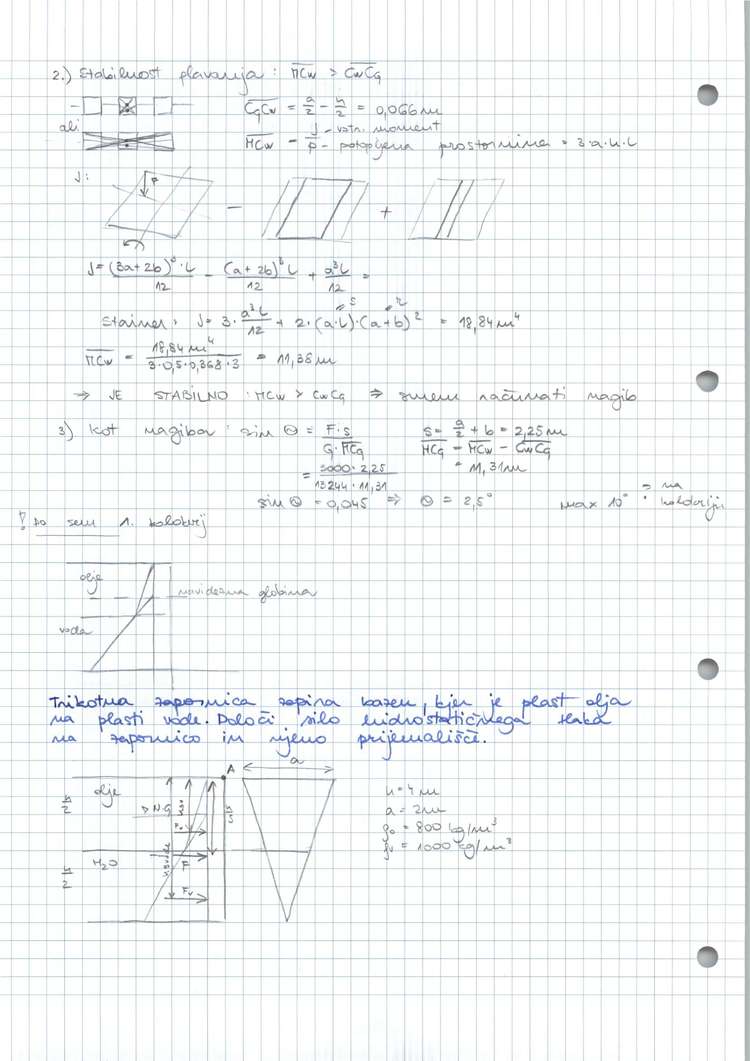 2.) Stabilnost plavanja : MCw > CwCg
CgCw = a/2 - h/2 = 0,066 m
ali
MCw = J/P - vztr. moment - potopljena prostornina = 3·a·h·L
J:
- +
J = (3a+2b)³·L/12 - (a+2b)³L/12 + a³L/12 =
Stainer: J = 3·a³L/12 + 2·(a·L)·(a+b)² = 18,84 m⁴
MCw = 18,84 m⁴/3·0,5·0,368·3 = 11,38 m
→ JE STABILNO : MCw > CwCg ⇒ smem računati nagib
3) Kot nagiba : sin Θ = F·s/G·MCg s = a/2 + b = 2,25 m
MCg = MCw - CwCg
= 3000·2,25/13244·11,31 = 11,31 m
sin Θ = 0,045 ⇒ Θ = 2,5° max 10° ? na kolokviju
! Do sem 1. kolokvij
olje
navidezna globina
voda
Trikotna zapornica zapira bazen, kjer je plast olja
na plasti vode. Določi silo hidrostatičnega tlaka
na zapornico in njeno prijemališče.
A a
h/2 olje h = 4 m
N.G a = 2 m
ρo = 800 kg/m³
h/2 H2O F ρv = 1000 kg/m³
Fv